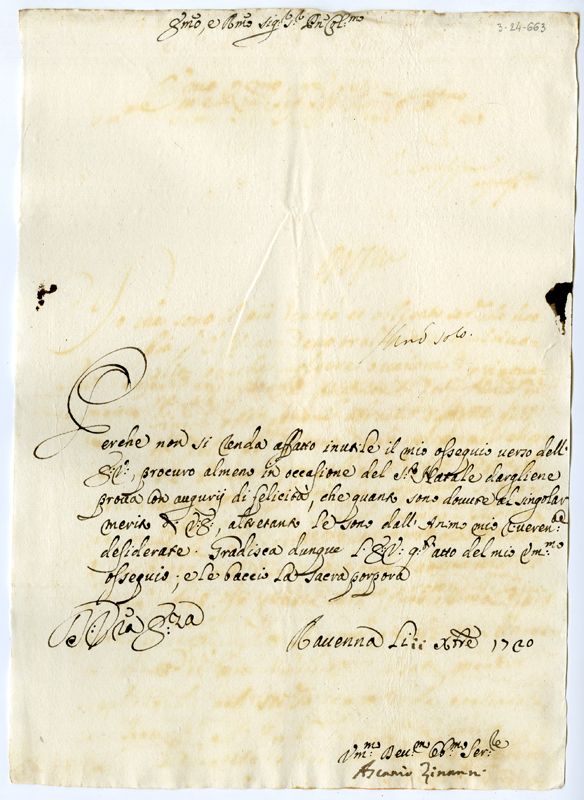 Emo, e Rmo Sigr. Sr. Pn Colmo
3-24-663
solo.
Perche non si renda affatto inutile il mio ossequio verso dell'
E.V., procuro almeno in occasione del S. Natale dargliene
proua con augurij di felicità, che quanto sono douute al singolar
merito di V.E., altretanto le sono dall'Animo mio reueren.
desiderate. Gradisca dunque l'E.V. qto atto del mio Vmmo
ossequio; e le baccio la Sacra porpora
Di Vra Emza
Rauenna Li 11 Xbre 1720
Vmmo Deumo Obmo Serre
Ascanio